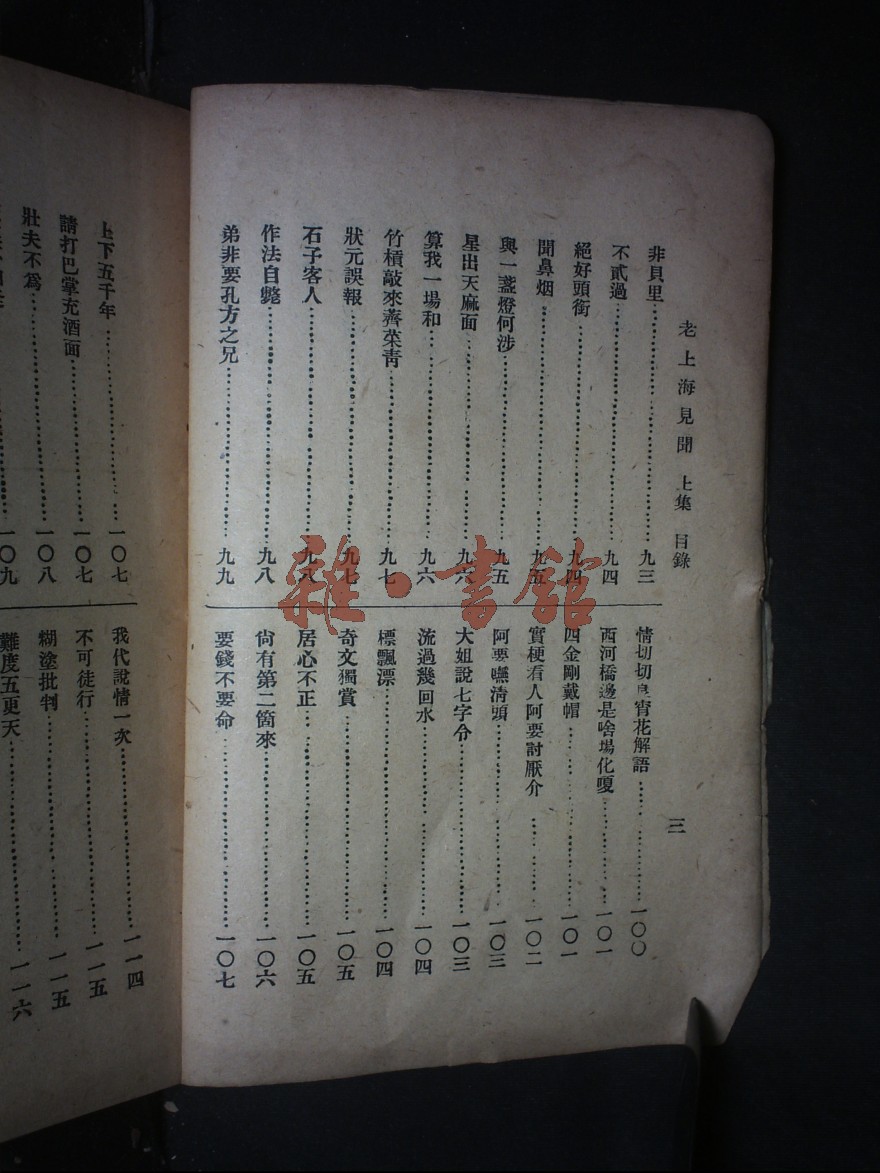 老上海見聞 上集 目錄
三
非貝里……九三
不貳過……九四
絕好頭銜……九四
聞鼻烟……九五
與一盞燈何涉……九五
星出天麻面……九六
算我一場和……九六
竹槓敲來薺菜靑……九七
狀元誤報……九七
石子客人……九八
作法自斃……九八
弟非要孔方之兄……九九
情切切良宵花解語……一〇〇
西河橋邊是啥場化嗄……一〇一
四金剛戴帽……一〇一
實梗看人阿要討厭介……一〇二
阿要嘸淸頭……一〇三
大姐說七字令……一〇三
流過幾回水……一〇四
標飄漂……一〇四
奇文獨賞……一〇五
居心不正……一〇五
尙有第二箇來……一〇六
要錢不要命……一〇七
上下五千年……一〇七
請打巴掌充酒面……一〇七
壯夫不爲……一〇八
一〇九
我代說情一次……一一四
不可徒行……一一五
糊塗批判……一一五
難度五更天……一一六
雜·書館